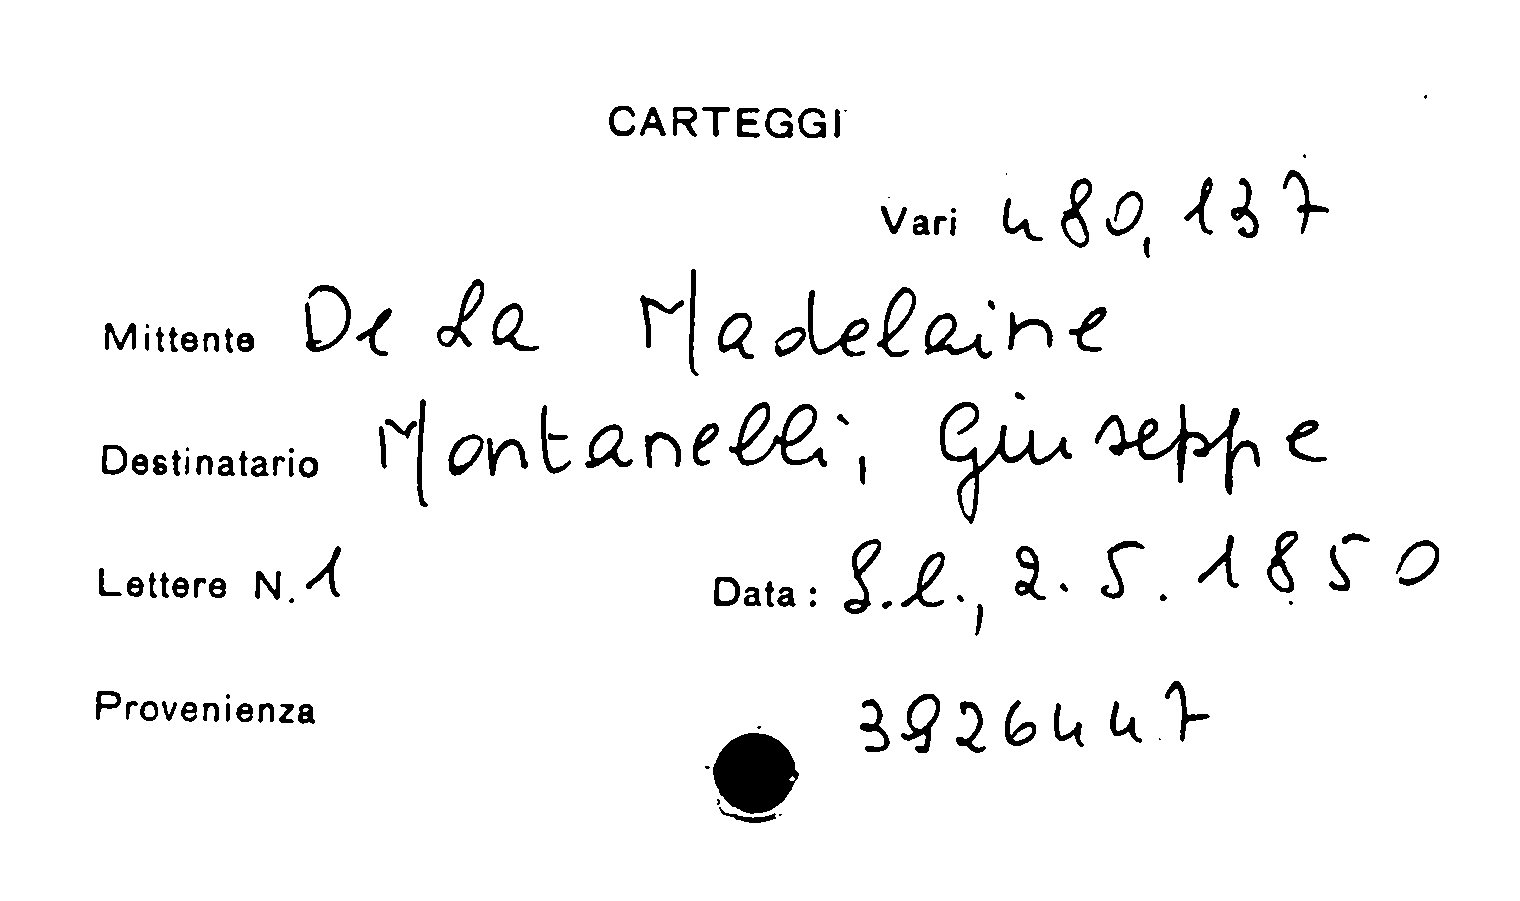 CARTEGGI
Vari 480, 137
Mittente De La Madelaine
Destinatario Montanelli, Giuseppe
Lettere N. 1 Data: S.l., 2.5.1850
Provenienza 3926447